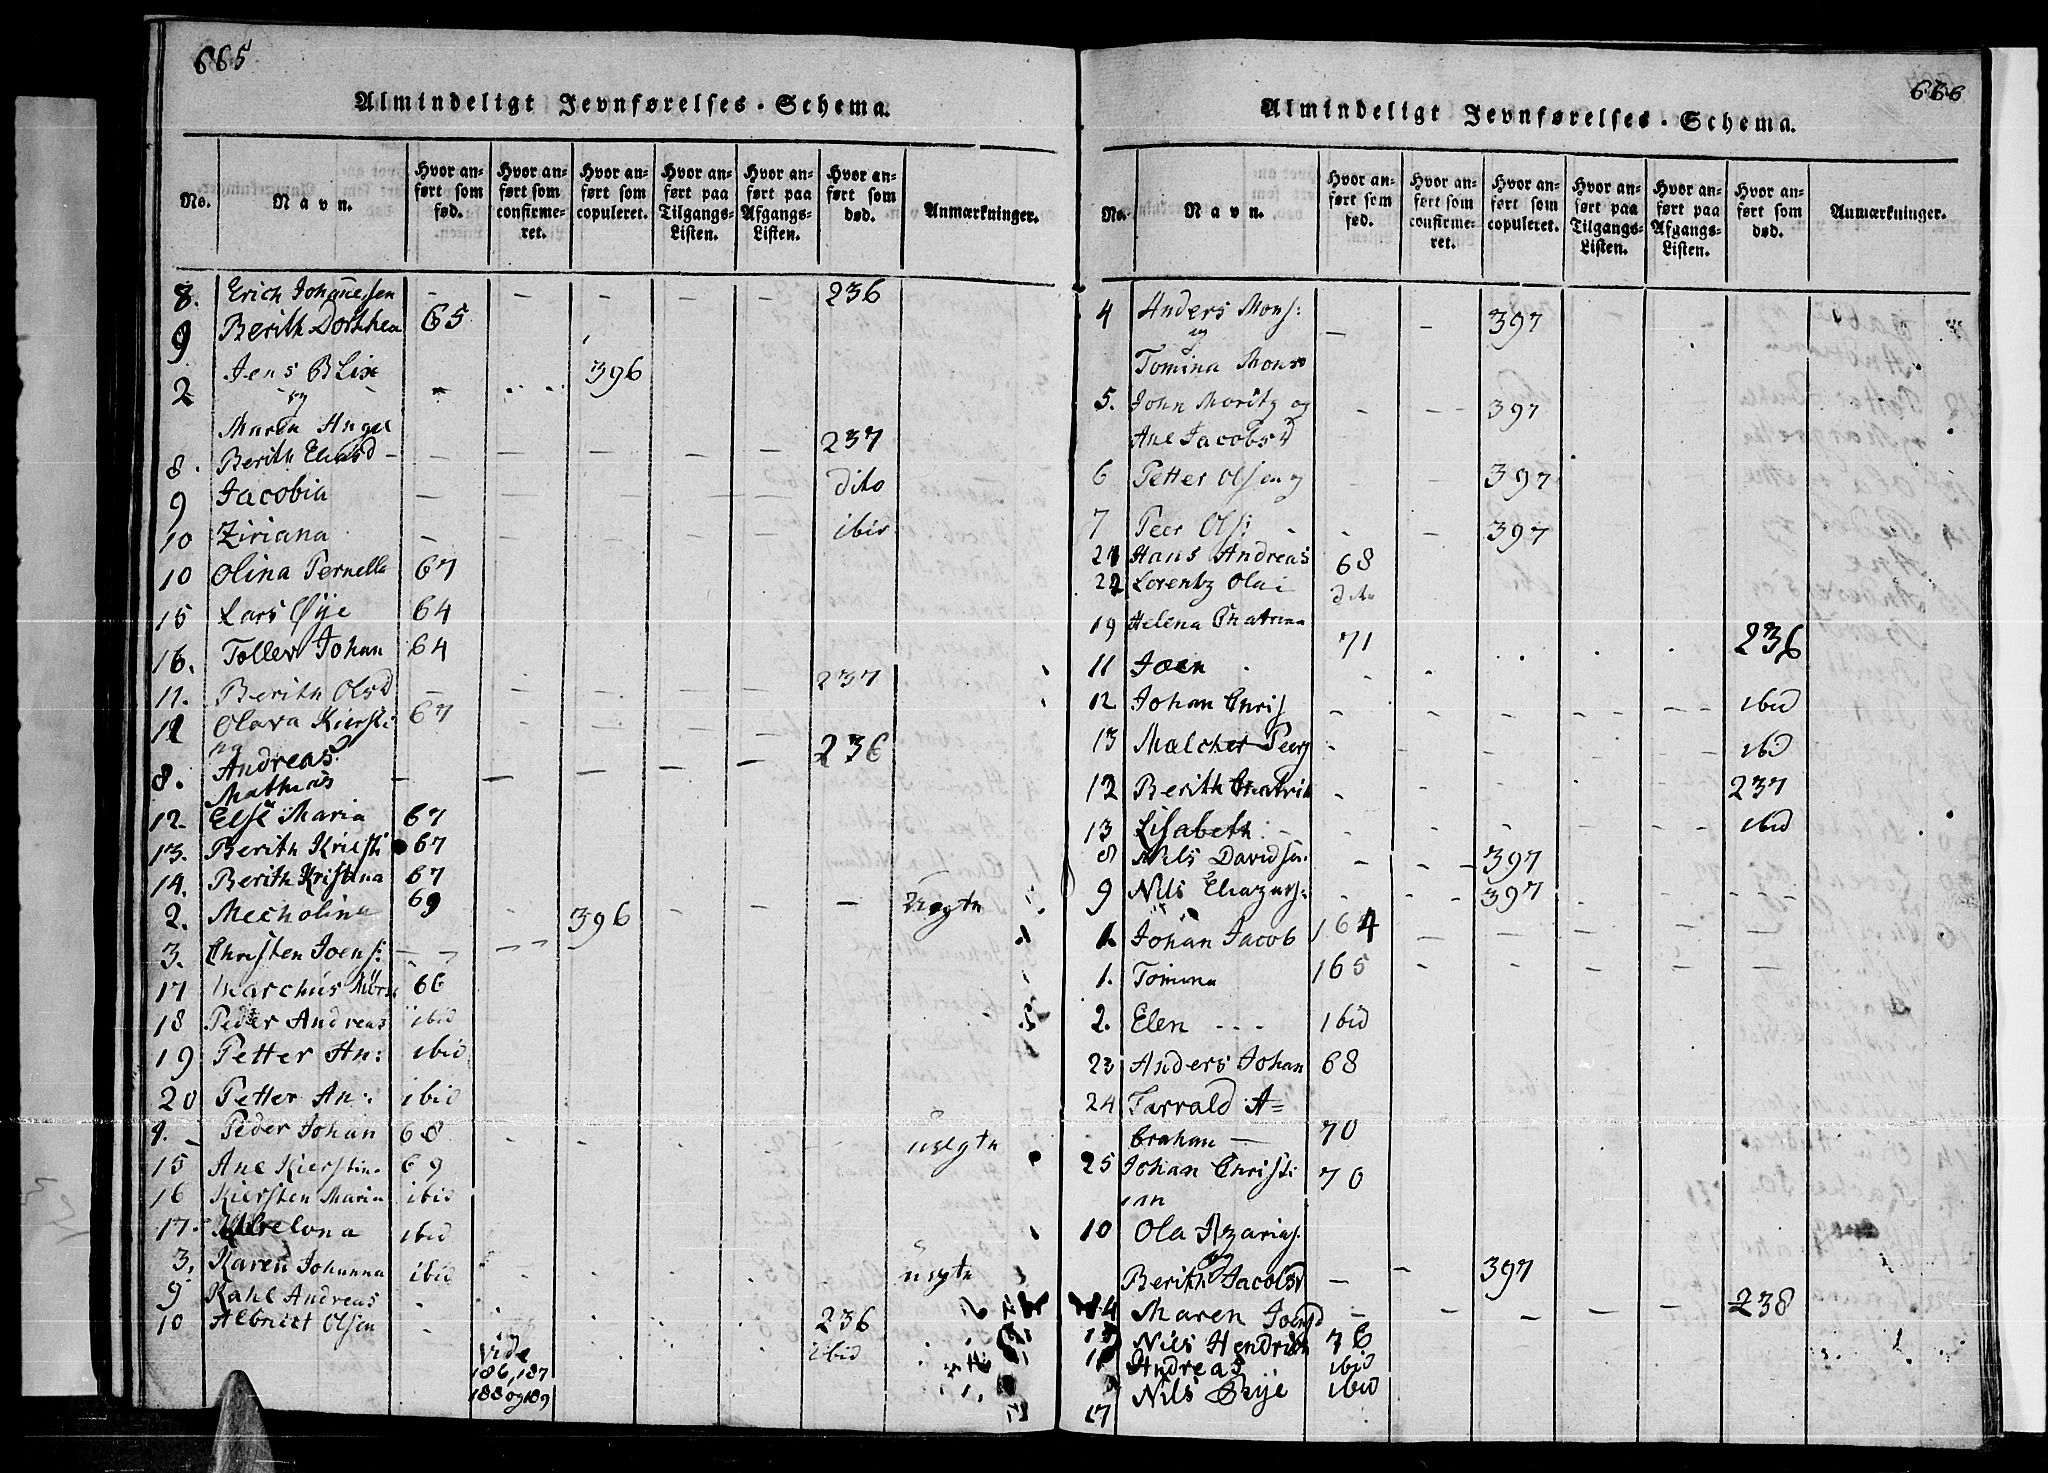 665
Almindeligt Jevnførelses-Schema.
No. Navn. Hvor anført som fød. Hvor anført som confirmeret. Hvor anført som copuleret. Hvor anført paa Tilgangs-Listen. Hvor anført paa Afgangs-Listen. Hvor anført som død. Anmærkninger.
8. Erich Johannessen - - - - - 236
9 Berith Dorthea 65
2 Jens B Lix - - 396
og
Maren Angel
8. Berith Eliasd - - - - - - 237
9 Jacobia - - - - - dito
10 Ziriana - - - - - ibid
10 Olina Pernella 67
15 Lars Øije 64
16. Toller Johan 64
11. Berith Olsd - - - - - 237
Olava Kiersti 67
8. Andreas Mathias - - - - - 236
12. Else Maria 67
13. Berith Kristi 67
14. Berith Kristina 67
2. Mecholina 69 - - -
3. Christen Joens: - - - - 396
17 Marchus 66
18 Peder Andreas ibid
19 Petter An: ibid
20 Petter An: ibid
Peder Johan 68 - - - - -
15 Ane Kierstin. 69
16 Kiersten Maria ibid
17. ibid
3. Karen Johanna ibid
9 Kahl Andreas - 236
10 Albrict Olsen - ibid
vide
186, 187
188 og 189
666
Almindeligt Jevnførelses-Schema.
No. Navn. Hvor anført som fød. Hvor anført som confirmeret. Hvor anført som copuleret. Hvor anført paa Tilgangs-Listen. Hvor anført paa Afgangs-Listen. Hvor anført som død. Anmærkninger.
4 Anders Mons: - - 397
og
Tomina Monsd
5. John Moritz og - - 397
Ane Jacobsd
6 Petter Olsen og - - 397
7 Peer Ols: - - 397
21 Hans Andreas 68
22 Lorentz Olai dito
19 Helena Chatrina 71
11 Joen - - 236
12 Johan Chris - - - - - ibid
13 Malcher Peers - - - - - ibid
12 Berith Chatrin - - 237
13 Lisabeth - - - - - - ibid
8 Nils Davidsen. - - - 397
9 Nils Eliazars: - - - 397
1. Johan Jacob 164 - - - - -
1. Tomina 165 - - - - -
2. Elen - - - ibid
23 Anders Johan 68
24 Tarrald A=
brahan - 70
25 Johan Christi 70
an
10 Ola Azarias.
og
Berith Jacobsd - - 397
Maren Joensd - - - - - 238
Nils Hendrich 76
Andreas ibid
17 Nils Øije ibid